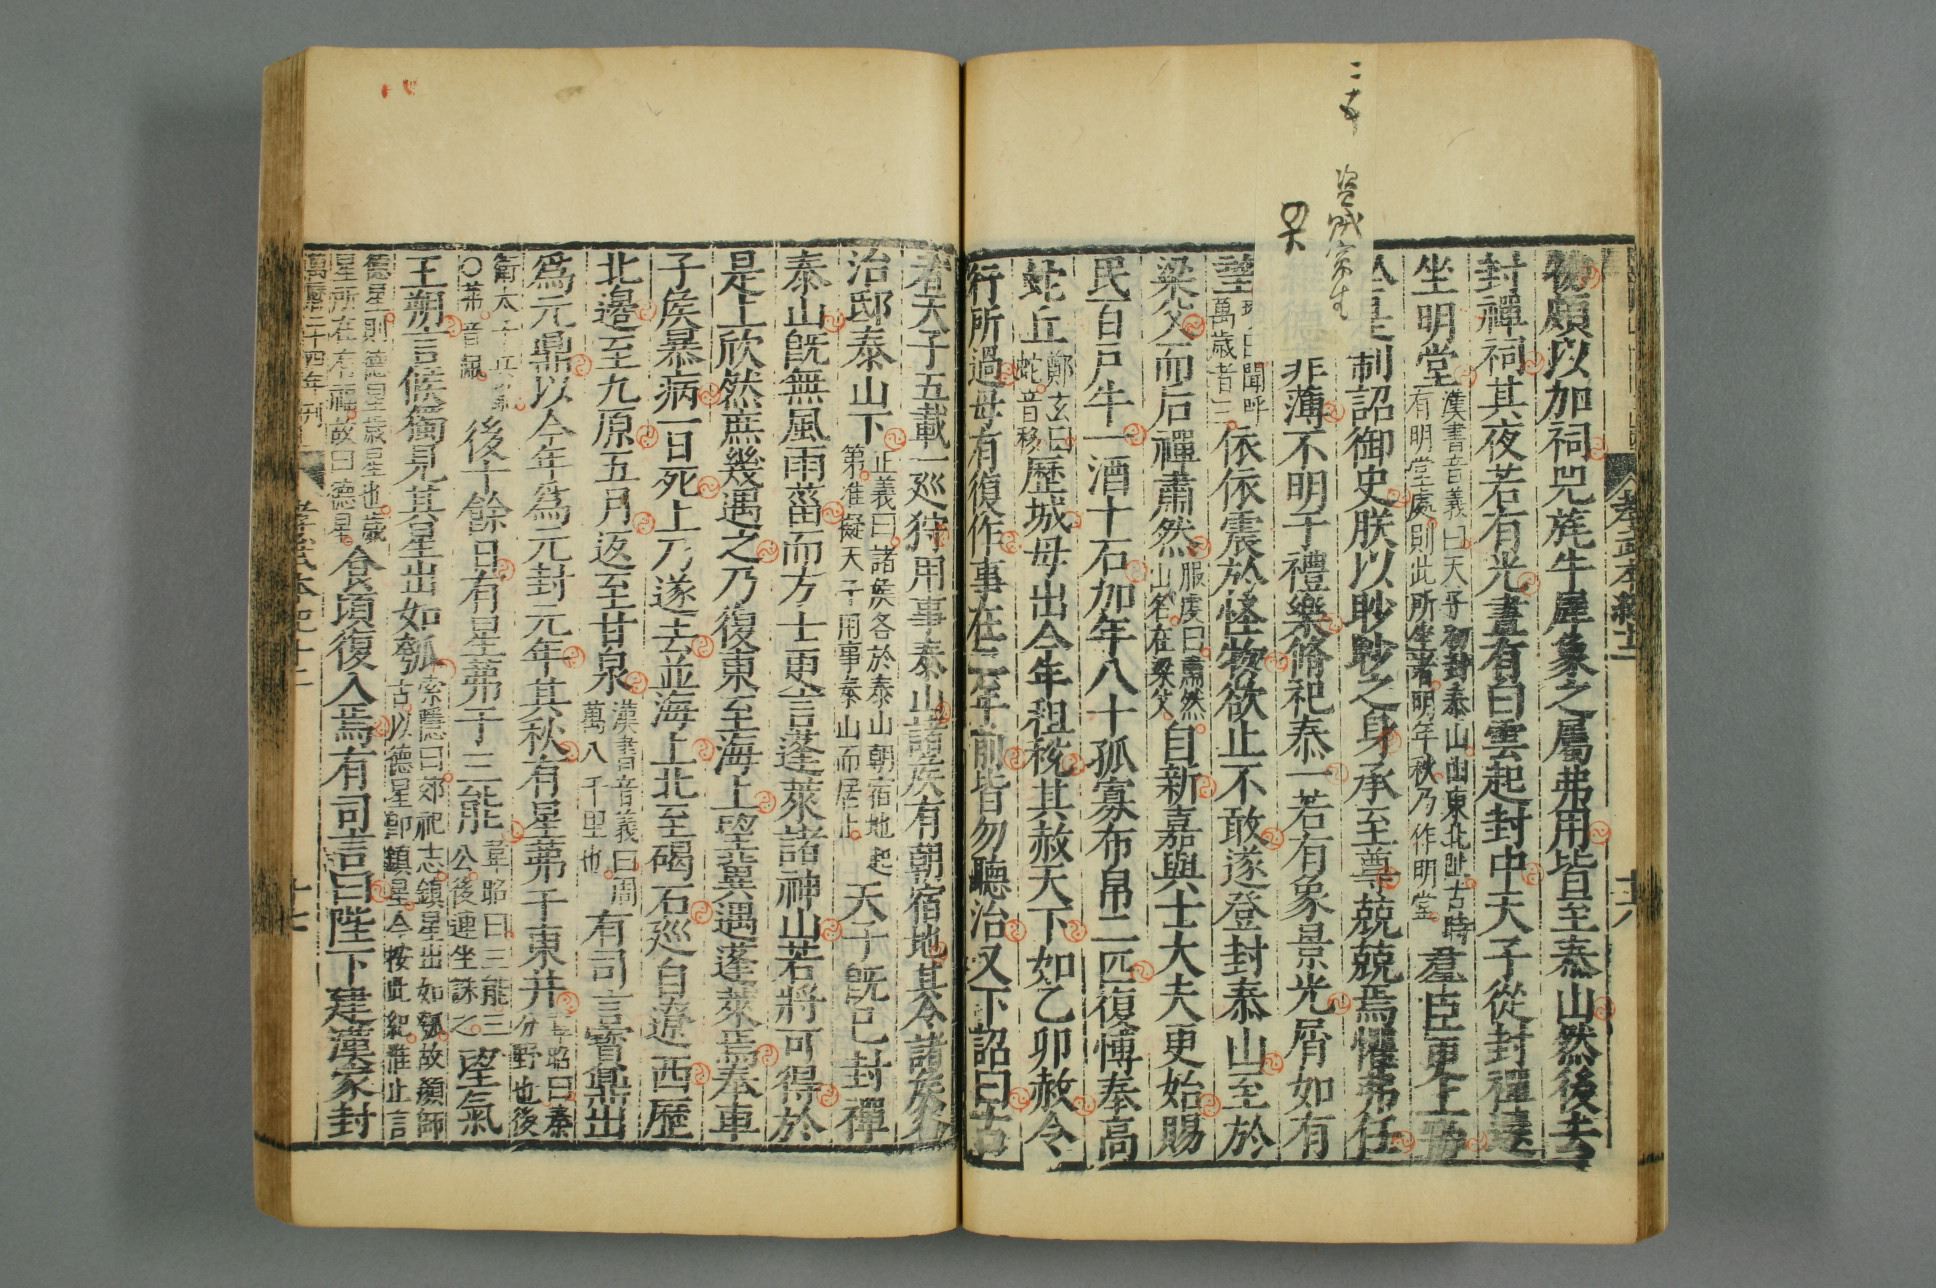 孝武本紀十二
十六
物頗以加祠兕旄牛犀象之屬弗用皆至泰山然後去
封禪祠其夜若有光晝有白雲起封中天子從封禪還
坐明堂
漢書音義曰天子初封泰山山東北阯古時
有明堂處則此所坐者明年秋乃作明堂
羣臣更上壽
於是制詔御史朕以眇眇之身承至尊兢兢焉懼弗任
維德非薄不明于禮樂脩祀泰一若有象景光屑如有
望
瓚曰聞呼
萬歲者三
依依震於怪物欲止不敢遂登封泰山至於
梁父而后禪肅然
服虔曰肅然
山名在梁父
自新嘉與士大夫更始賜
民百戶牛一酒十石加年八十孤寡布帛二匹復博奉高
蛇丘
鄭玄曰
蛇音移
歷城毋出今年租稅其赦天下如乙卯赦令
行所過毋有復作事在二年前皆勿聽治又下詔曰古
者天子五載一巡狩用事泰山諸侯有朝宿地其令諸侯各
治邸泰山下
正義曰諸侯各於泰山朝宿地起
第准擬天子用事泰山而居止
天子既已封禪
泰山既無風雨菑而方士更言蓬萊諸神山若將可得於
是上欣然庶幾遇之乃復東至海上望冀遇蓬萊焉奉車
子侯暴病一日死上乃遂去並海上北至碣石巡自遼西歷
北邊至九原五月返至甘泉
漢書音義曰周
萬八千里也
有司言寶鼎出
爲元鼎以今年爲元封元年其秋有星茀于東井
韋昭曰秦
分野也後
衛太子兵亂
○茀音佩
後十餘日有星茀于三能
韋昭曰三能三
公後連坐誅之
望氣
王朔言候獨見其星出如瓠
索隱曰郊祀志鎮星出如瓠故顏師
古以德星即鎮星今按此紀唯止言
德星則德星歲星也歲
星所在有福故曰德星
食頃復入焉有司言曰陛下建漢家封
萬曆二十四年刊
孝武本紀十二
十七